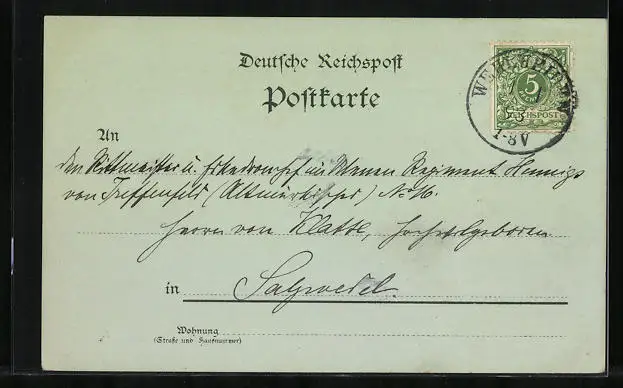 Deutsche Reichspost
Postkarte
5
PFENNIG
REICHSPOST
7-8 V
An
den Rittmeister u. Eskadronchef im Ulanen Regiment Hennigs
von Treffenfeld (Altmärkisches) No 16.
Herrn von Klatte, Hochwohlgeboren
in Salzwedel.
Wohnung
(Straße und Hausnummer)